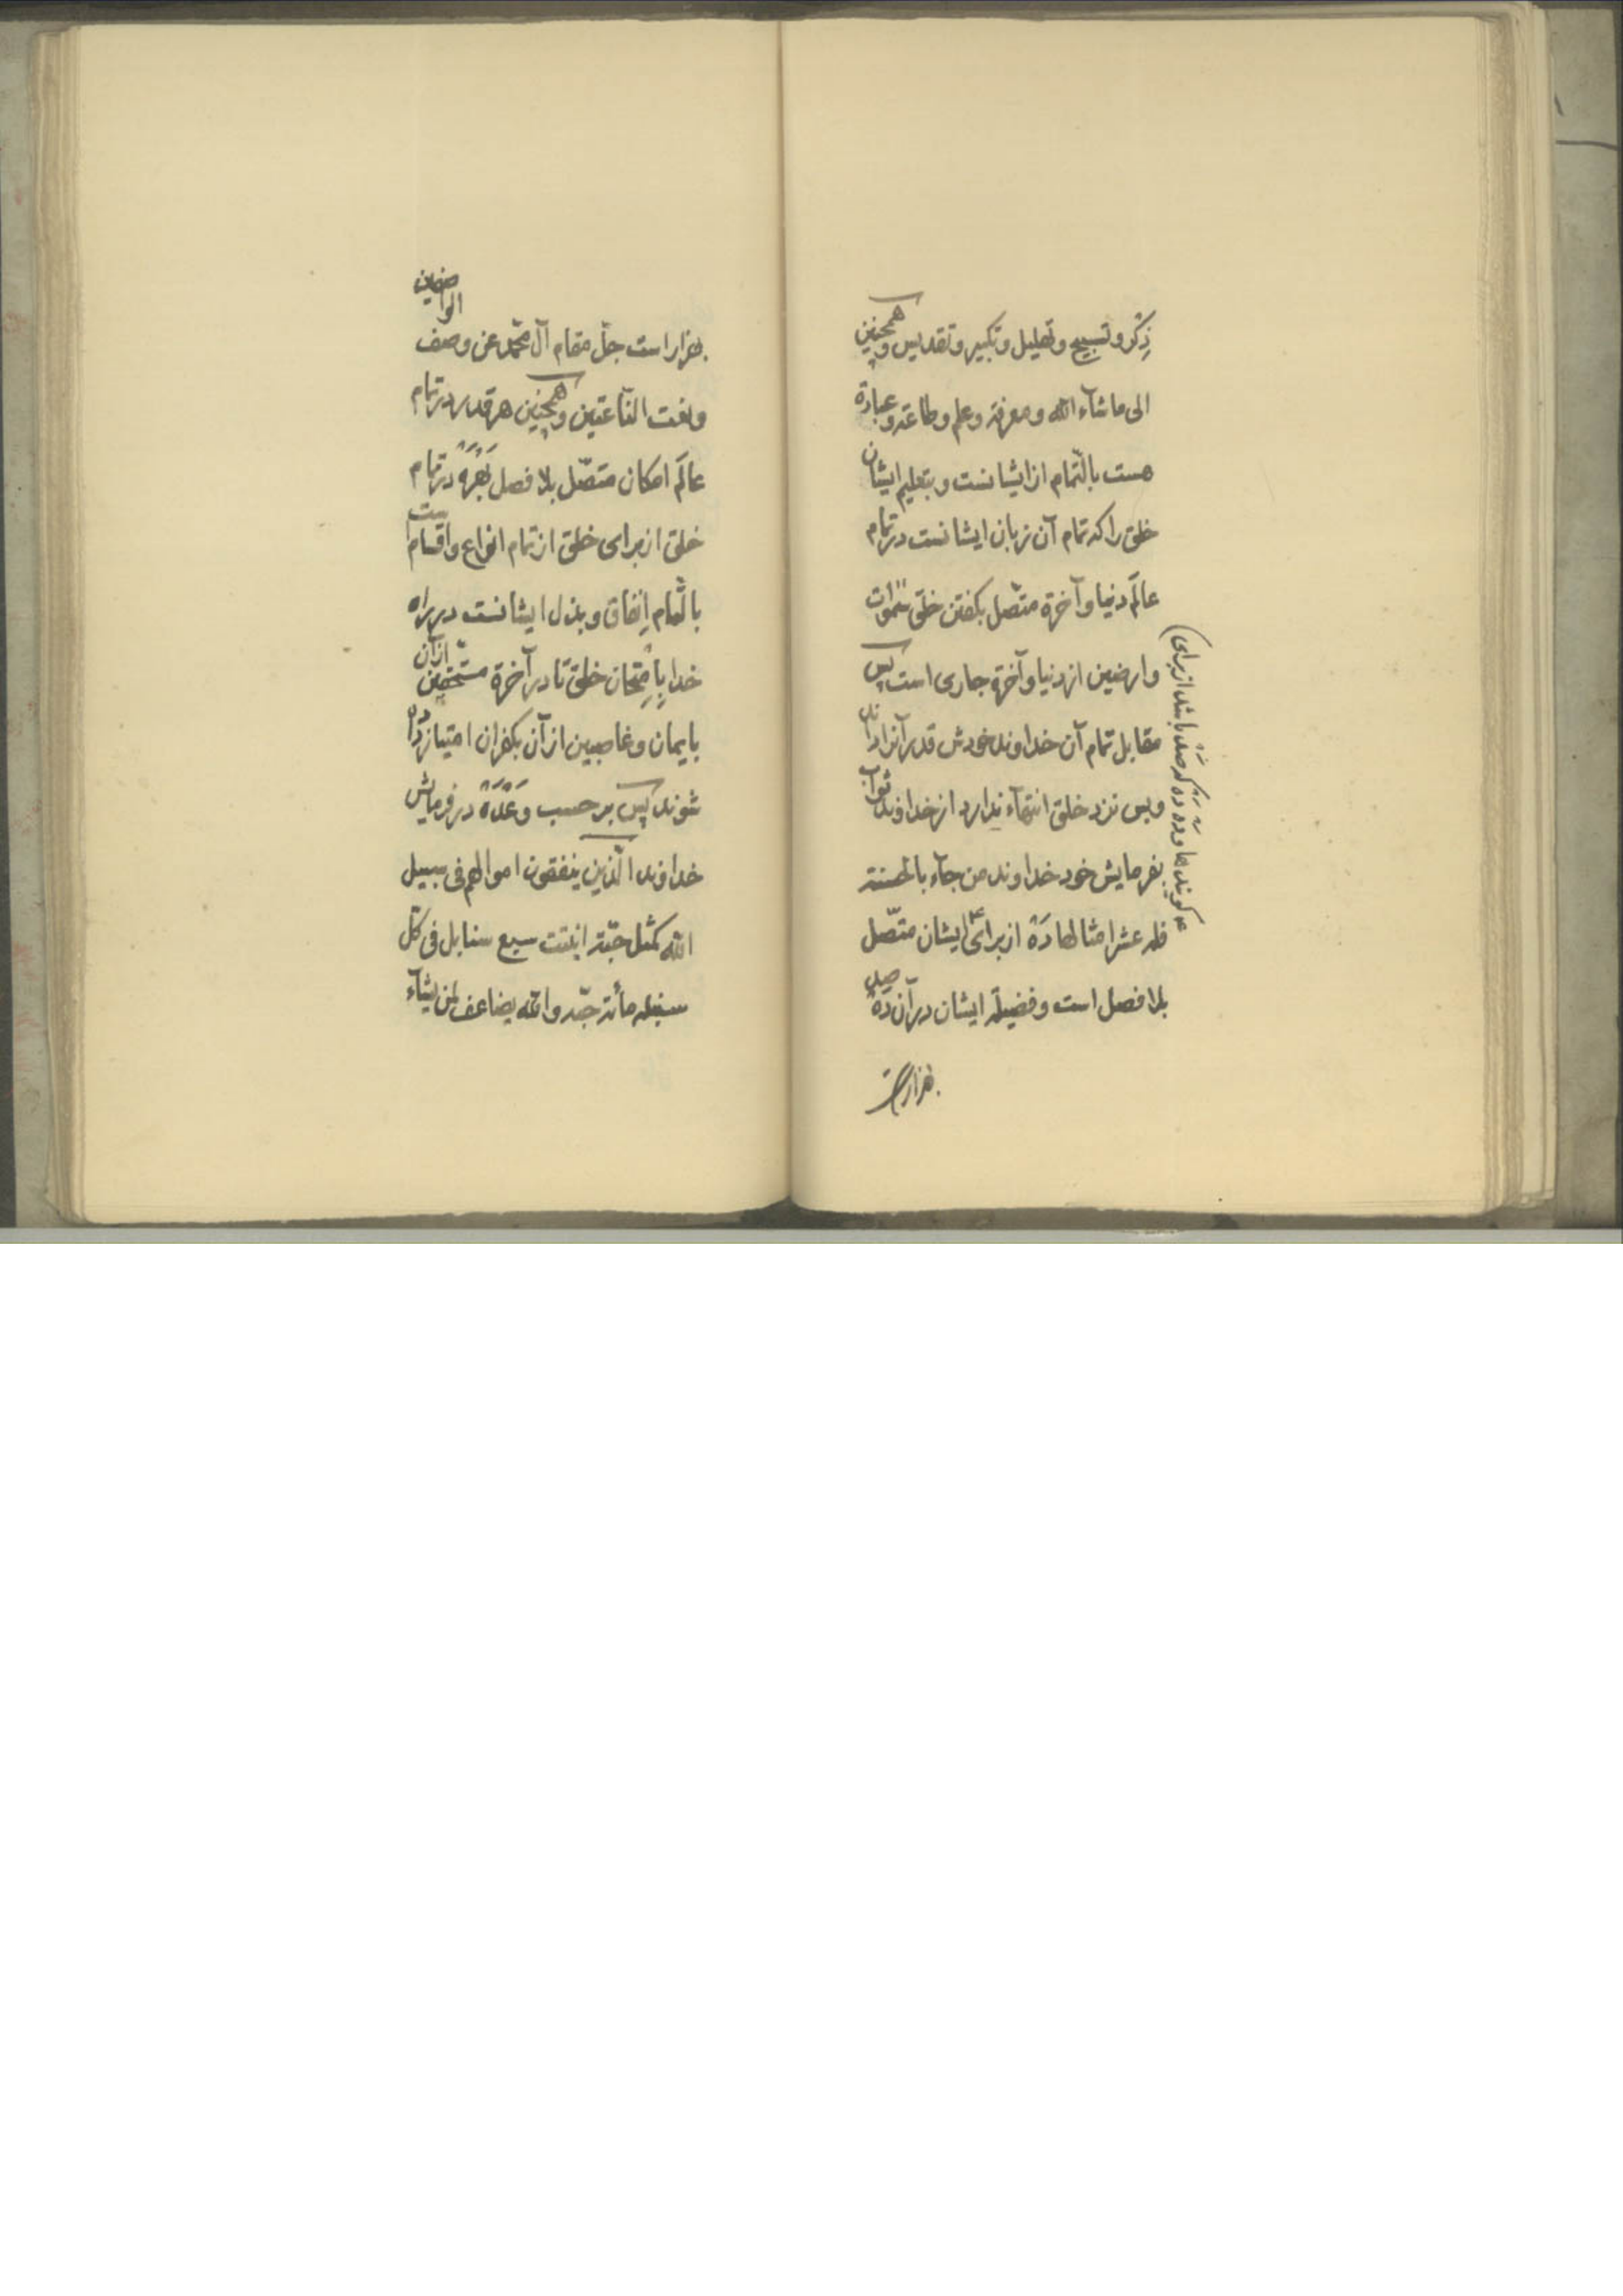 ذِکْر و تسبیح و تهلیل و تکبیر و تقدیس و همچنین
الی ماشآء الله و معرفة و علم و طاعة و عبادة
هست بالتّمام از ایشانست و بتعلیم ایشان
خلق را که تمام آن زبان ایشانست در تمام
عالَم دنیا و آخرة متّصل بگفتن خلق سموات
و ارضین از دنیا و آخرة جاری است پس
مقابل تمام آن خداوند خودش قدر آنرا داند
و بس نزد خلق انتهآء ندارد از خداوند ثواب
بفرمایش خود خداوند من جآء بالحسنة
فله عشر امثالها دَهْ از برای ایشان متّصل
بلا فصل است و فضیلة ایشان در آن دَهْ صد
هزار است
گویندها و ده دَهْ که صَدْ باشد از برای
هزار است جلّ مقام آل محمّد عن وصف الواصفین
و نعت النّاعتین و همچنین هر قدر در تمام
عالَم امکان متّصل بلا فصل بَهْرَهْ در تمام
خلق از برای خلق از تمام انواع و اقسام است
بالتّمام اِنفاق و بذل ایشانست در راه
خدا بِاِمتحان خلق تا در آخرة مستحقّین از آن
بایمان و غاصبین از آن بکفران امتیاز داده
شوند پس بر حسب وَعْدَهْ در فرمایش
خداوند الّذین ینفقون اموالهم فی سبیل
الله کمثل حبّة انبتت سبع سنابل فی کلّ
سنبلة مأئة حبّة و الله یضاعف لمن یشآء